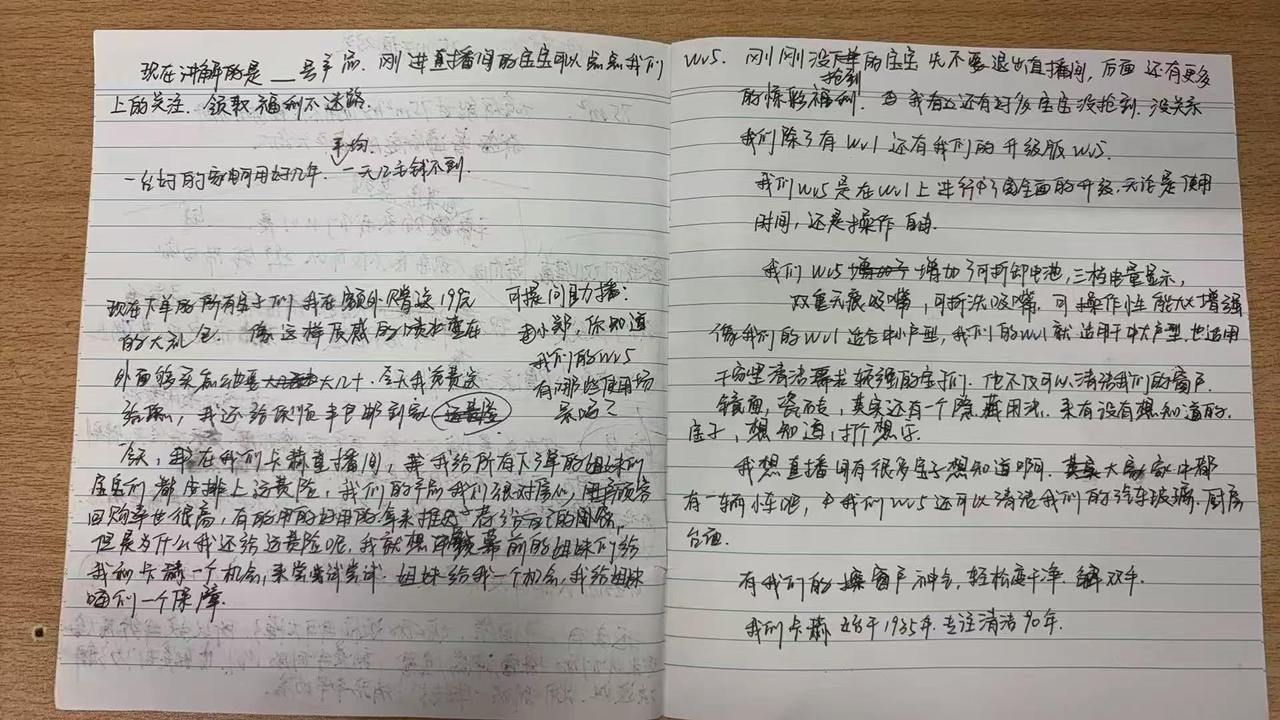 现在讲解的是__号产品. 刚进直播间的宝宝可以点点我们
上的关注. 领取福利不迷路.
平均.
一台好的家电可用好几年. 一天几毛钱不到.
现在下单的所有宝子们 我在额外赠送19元
的大礼包. 像这样质感的喷水壶在
外面够买怎么也要大几十. 今天我免费送
给你, 我还给你顺丰包邮到家 运费险
可提问助播:
小郑, 你知道
我们的WV5
有哪些使用场
景吗?
今天, 我在我们卡赫直播间, 我给所有下单的姐妹们
宝宝们都安排上运费险, 我们的产品我们很对信心, 用户顾客
回购率也很高, 有的用的好用的拿来推荐给自己的
但是为什么我还给运费险呢, 我就想屏幕前的姐妹们给
我和卡赫一个机会, 来尝尝试尝试. 姐妹给我一个机会, 我给姐妹
们一个保障.
WV5. 刚刚没抢到的宝宝先不要退出直播间, 后面还有更多
的惊彩福利. 我看还有好多宝宝没抢到. 没关系
我们除了有WV1还有我们的升级版WV5.
我们WV5是在WV1上进行了全面的升级. 无论是使用
时间, 还是操作
我们WV5增加了可拆卸电池, 三档电量显示,
双重无痕吸嘴, 可拆洗吸嘴. 可操作性能大大增强
像我们的WV1适合中小户型, 我们的WV1就适用于中大户型. 也适用
于家里清洁要求较强的宝子们. 他不仅可以清洁我们的窗户.
镜面, 瓷砖, 其实还有一个隐藏用法. 来有没有想知道的.
宝子, 想知道, 打想字.
我想直播间有很多宝子想知道啊. 其实大家家中都
有一辆小车吧, 我们WV5还可以清洁我们的汽车玻璃. 厨房
台面.
有我们的擦窗户神仓, 轻松度干净. 解双手.
我们卡赫立于1935年. 专注清洁90年.